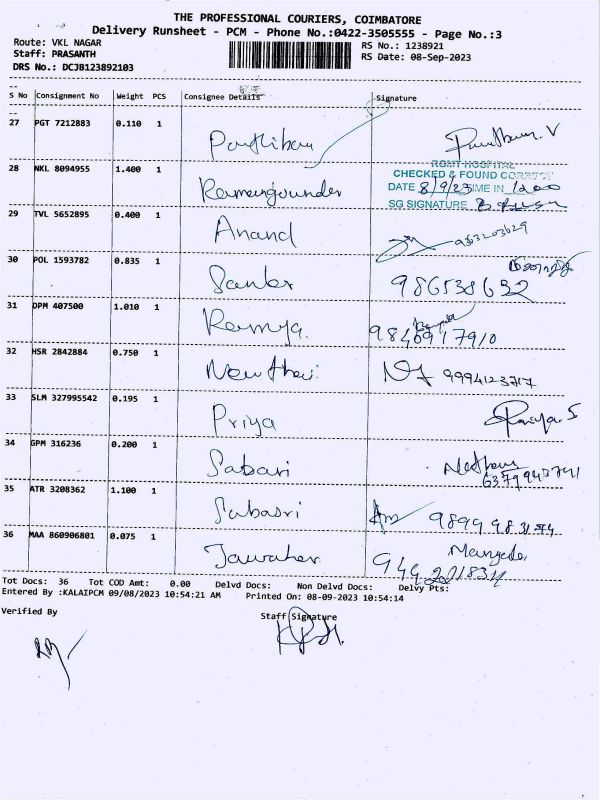 THE PROFESSIONAL COURIERS, COIMBATORE
Delivery Runsheet - PCM - Phone No.:0422-3505555 - Page No.:3
Route: VKL NAGAR
Staff: PRASANTH
DRS No.: DCJB123892103
RS No.: 1238921
RS Date: 08-Sep-2023
S No Consignment No Weight PCS Consignee Details Signature
27 PGT 7212883 0.110 1
28 NKL 8094955 1.400 1 Ramangounder
ROMT HOSPITAL
CHECKED & FOUND CORRECT
DATE 8/9/23 TIME IN 1200
SG SIGNATURE
29 TVL 5652895 0.400 1 Anand
30 POL 1593782 0.835 1 Sanker 986538632
31 DPM 407500 1.010 1 Ramya. 98460917910
32 HSR 2842884 0.750 1 9994123717
33 SLM 327995542 0.195 1 Priya Priya. S
34 GPM 316236 0.200 1 Sabari
35 ATR 3208362 1.100 1 Sabasri
36 MAA 860906801 0.075 1 Jawaher
Tot Docs: 36 Tot COD Amt: 0.00 Delvd Docs: Non Delvd Docs: Delvy Pts:
Entered By :KALAIPCM 09/08/2023 10:54:21 AM Printed On: 08-09-2023 10:54:14
Verified By Staff Signature